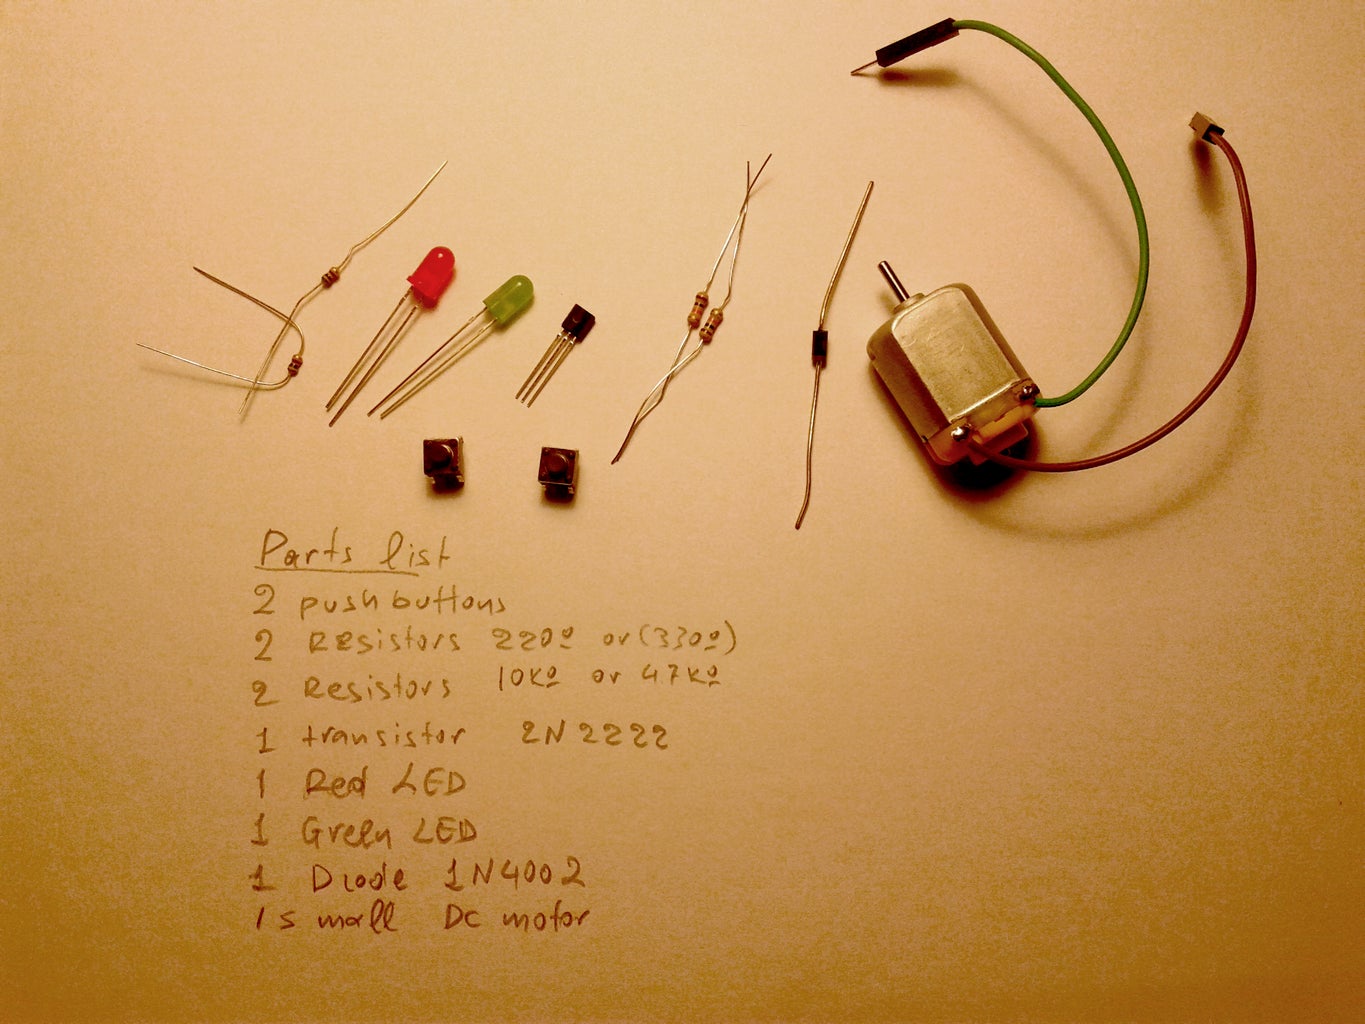 Parts list
2 push buttons
2 Resistors 220º or (330º)
2 Resistors 10Kº or 47Kº
1 transistor 2N2222
1 Red LED
1 Green LED
1 Diode 1N4002
1 small DC motor